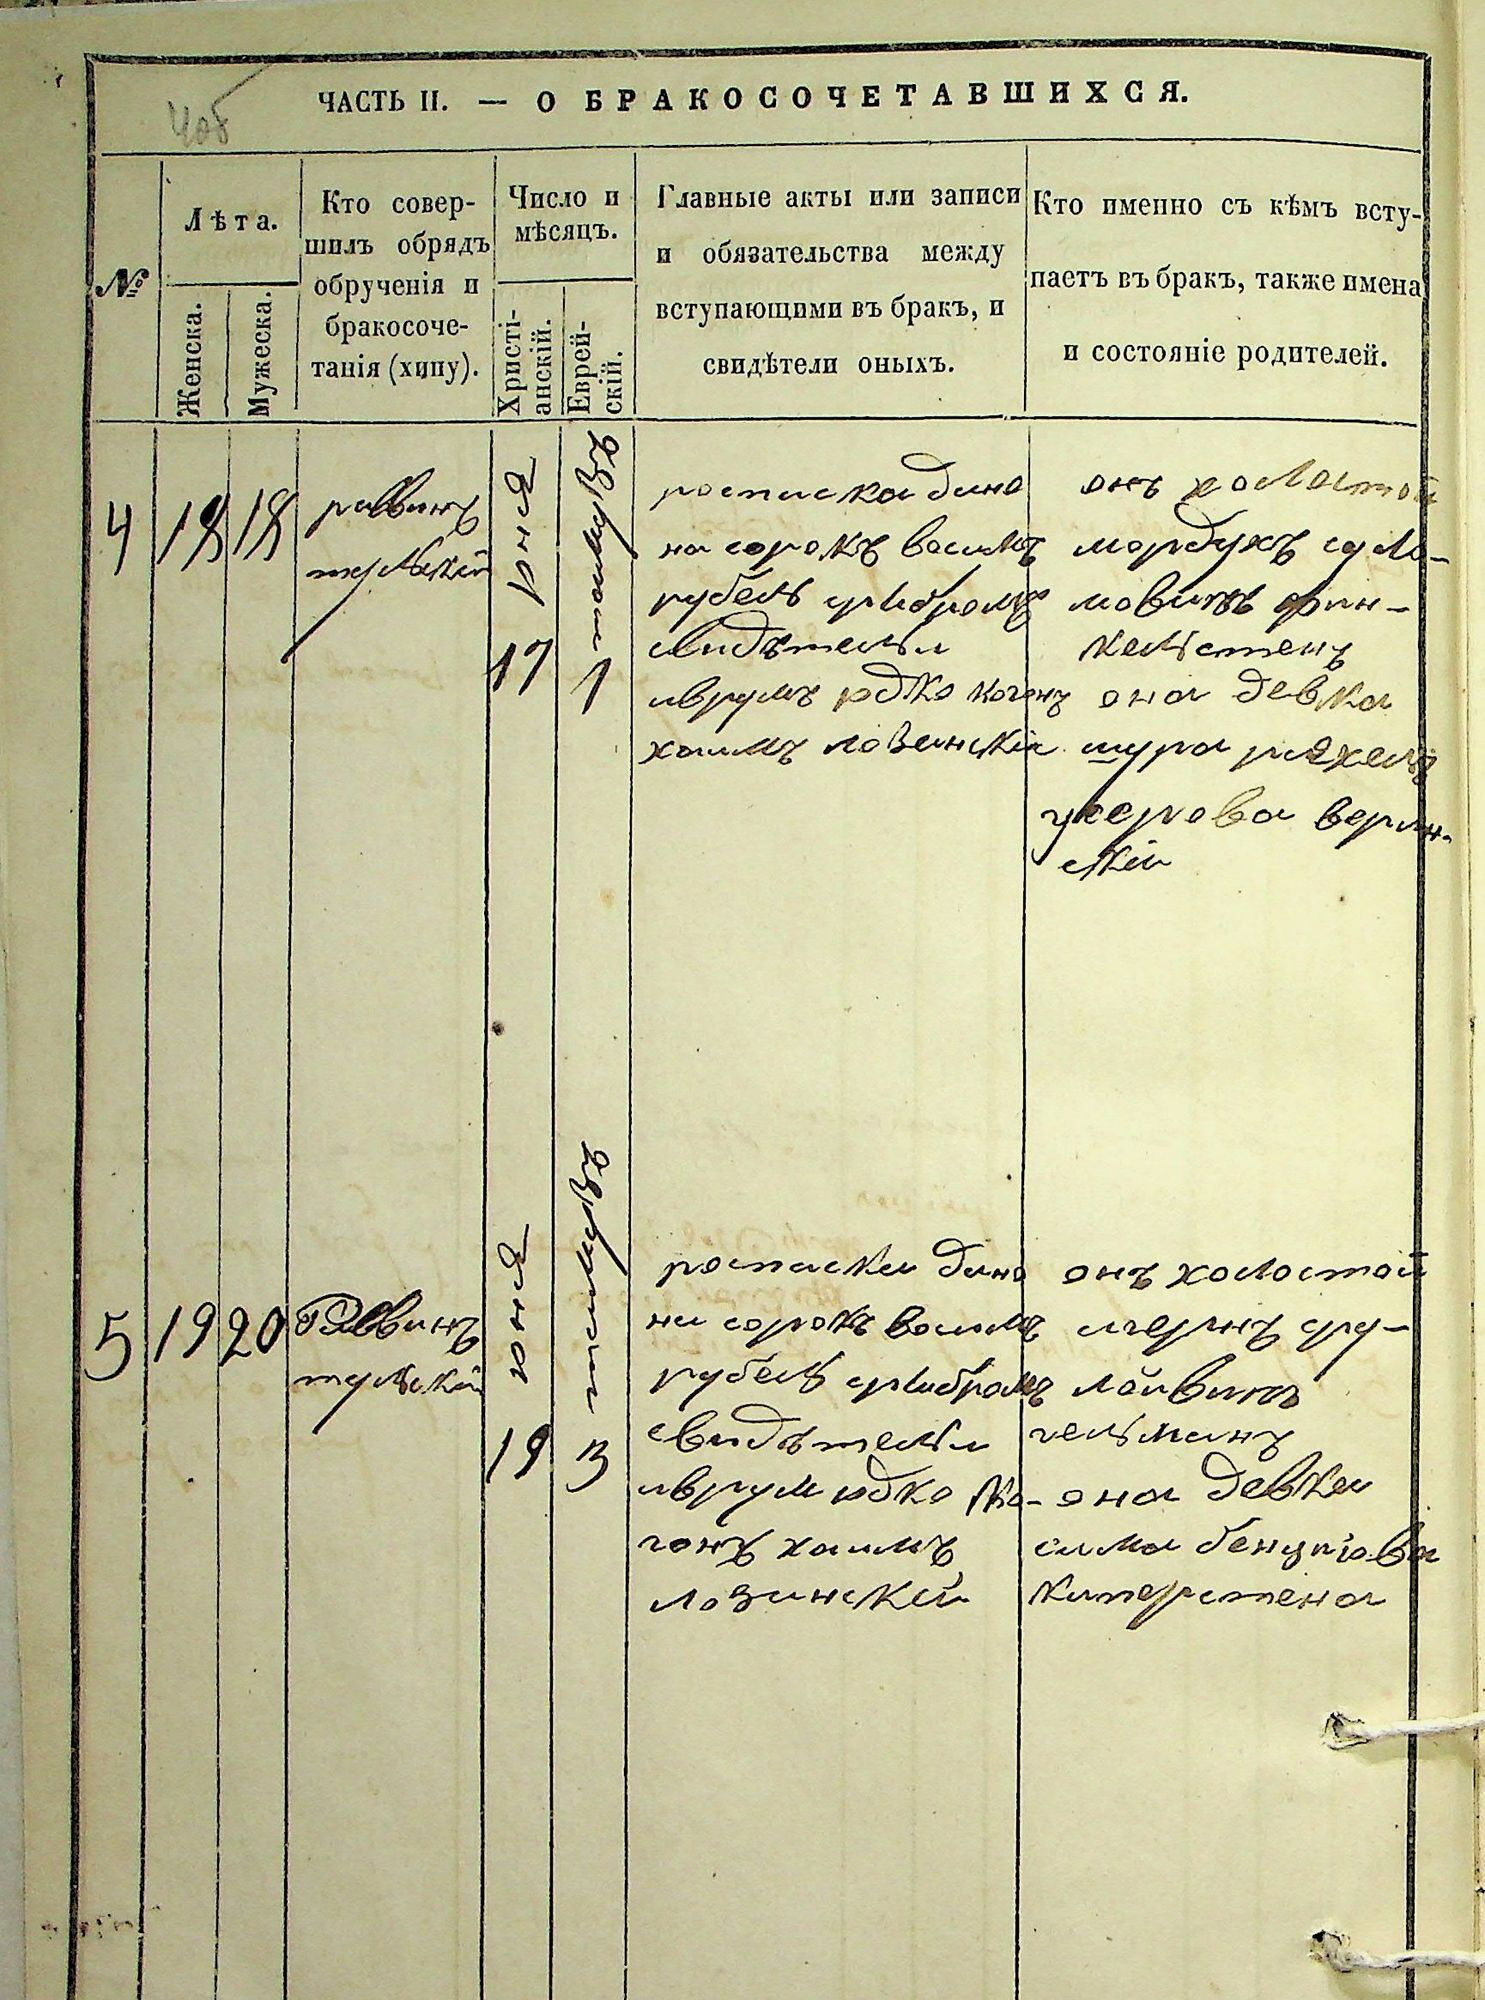 406
ЧАСТЬ II. — О БРАКОСОЧЕТАВШИХСЯ.
№
Лѣта.
Женска.
Мужеска.
Кто совер-
шилъ обрядъ
обрученія и
бракосоче-
танія (хупу).
Число и
мѣсяцъ.
Христі-
анскій.
Еврей-
скій.
Главные акты или записи
и обязательства между
вступающими въ бракъ, и
свидѣтели оныхъ.
Кто именно съ кѣмъ всту-
паетъ въ бракъ, также имена
и состояніе родителей.
4
18
18
раввинъ
тульскій
17
юня
1
тамузъ
росписка дана
на сорокъ восимъ
рубель срибромъ
свидѣтели
аврумъ юдко когонъ
хаимъ лозинскій
онъ холостой
мордухъ сруло-
мовичъ фин-
кельстенъ
она девка
шура рахель
ушерова верлин-
скій
5
19
20
Раввинъ
тульскій
19
юня
3
тамузъ
росписка дана
на сорокъ восимъ
рубель срибромъ
свидѣтели
аврум юдко ко-
гонъ хаимъ
лозинскій
онъ холостой
меръ сру-
лёвичъ
гельманъ
она девка
сима бенционова